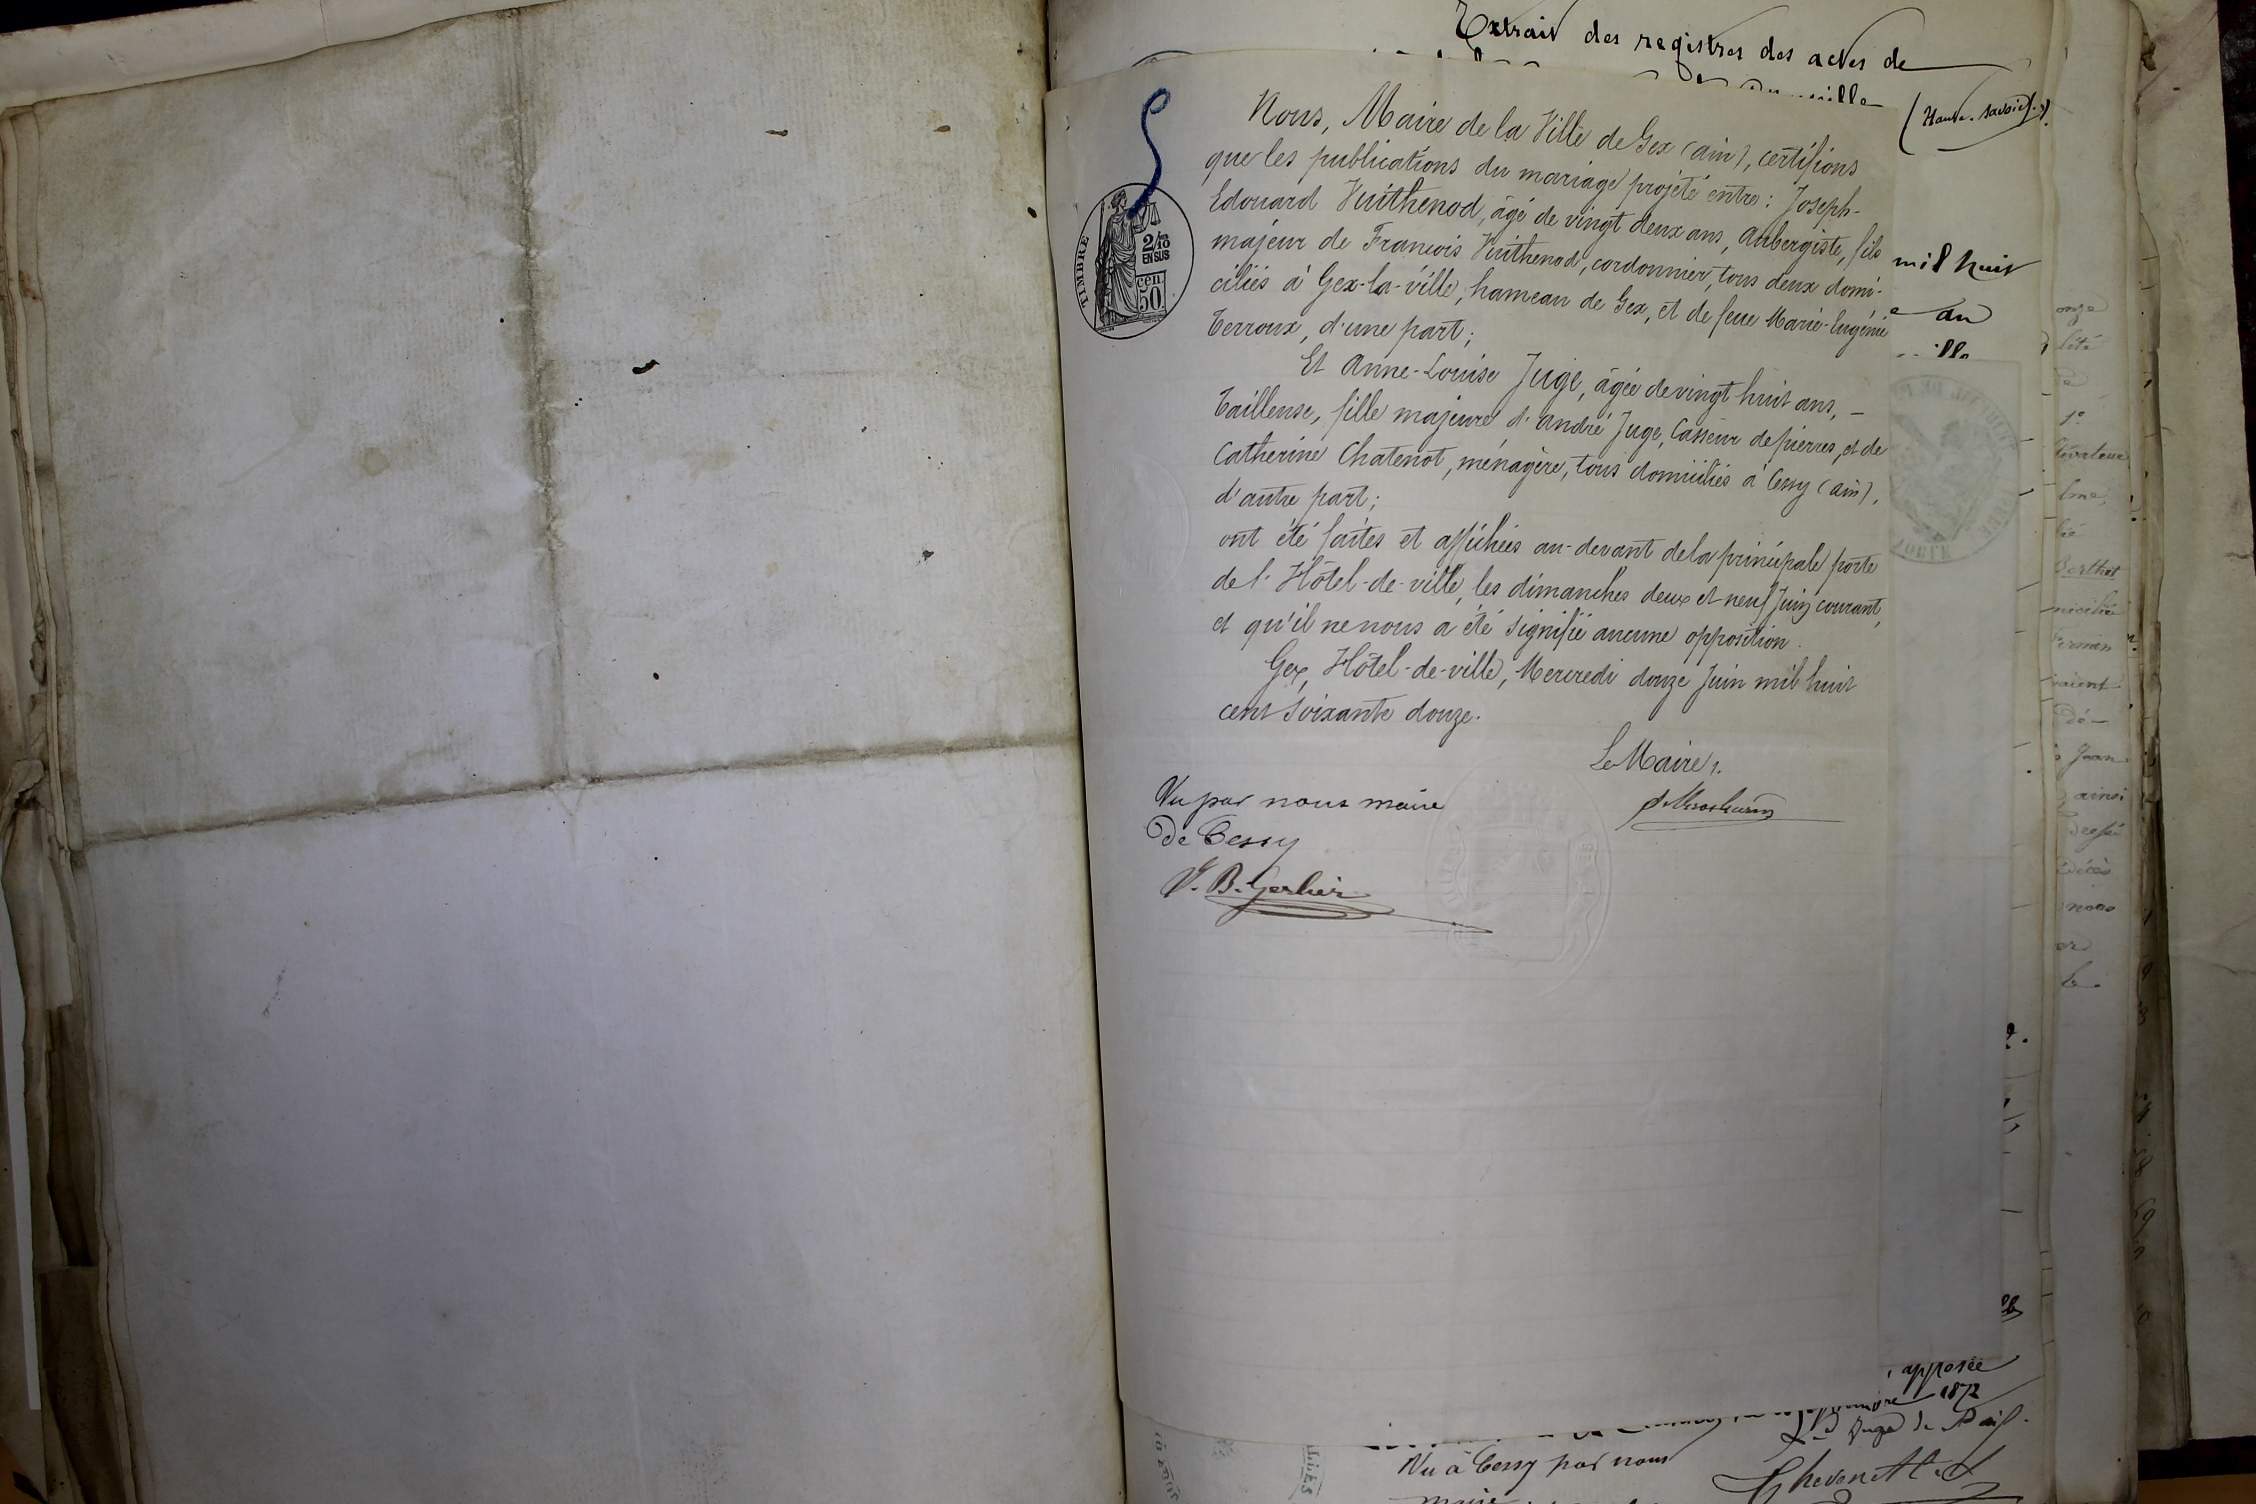 Extrait des registres des actes de
(Haute-Savoie).
Nous, Maire de la Ville de Gex (ain), certifions
que les publications du mariage projeté entre : Joseph-
Edouard Vuithenod, âgé de vingt deux ans, Aubergiste, fils
majeur de François Vuithenod, cordonnier, tous deux domi-
ciliés à Gex-la-ville, hameau de Gex, et de feue Marie-Eugénie
Terroux, d'une part ;
Et Anne-Louise Juge, âgée de vingt huit ans, –
Tailleuse, fille majeure d'André Juge, Casseur de pierres, et de
Catherine Chatenot, ménagère, tous domiciliés à Cessy (ain),
d'autre part ;
ont été faites et affichées au-devant de la principale porte
de l'Hôtel-de-ville, les dimanches deux et neuf Juin courant,
et qu'il ne nous a été signifié aucune opposition.
Gex, Hôtel-de-ville, Mercredi douze Juin mil huit
cent soixante douze.
Le Maire,
Vu par nous maire
De Cessy
J. B. Gerlier
TIMBRE
2/10
EN SUS
50 cen
mil huit
au
onze
1°
Berthet
vaient
dé-
Jean
ainsi
nous
Le
apposée
1872
Juge de Paix.
Vu à Cessy par nous
maire